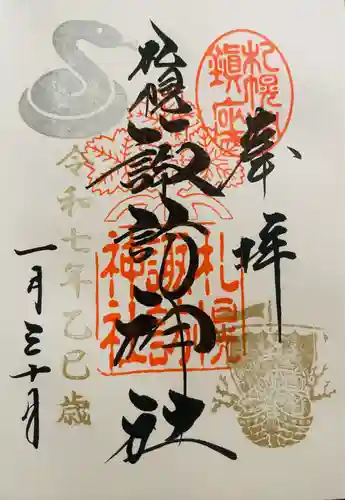 奉拝
札幌
鎮座
札幌諏訪神社
札幌
諏訪
神社
令和七年乙巳歳
一月三十日